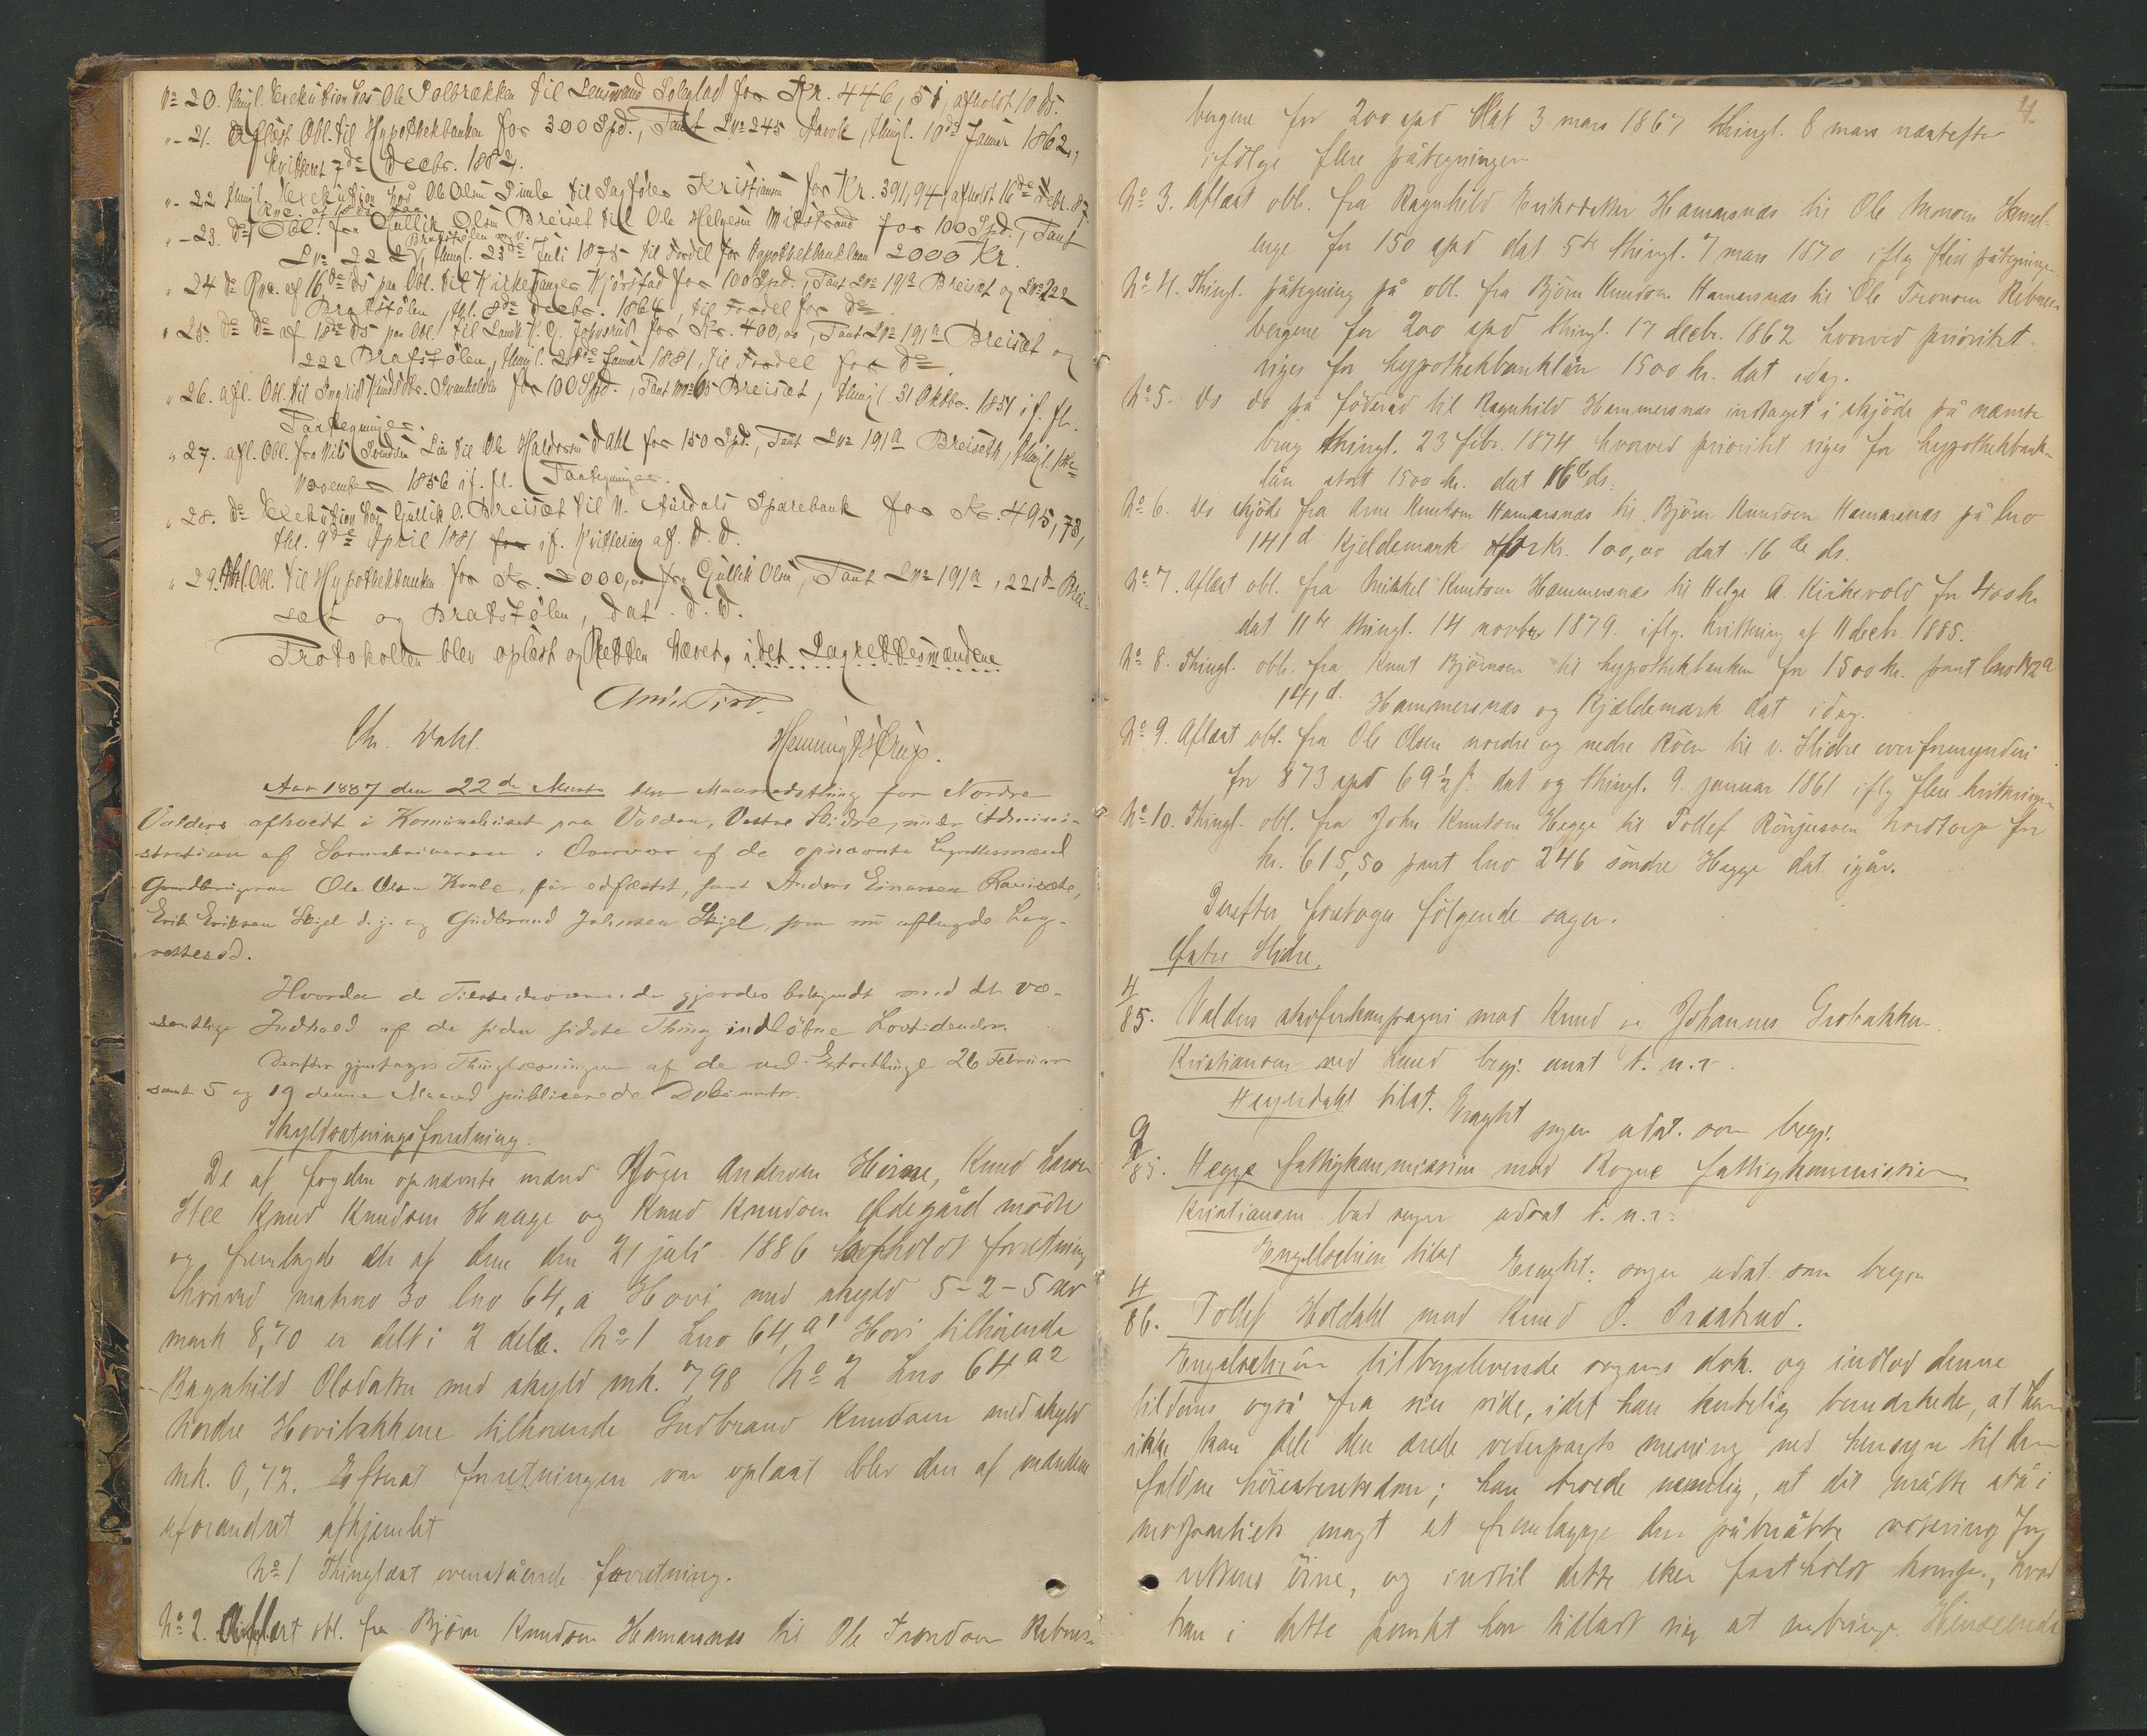 No 20. Thingl. Exekution hos Ole Solbrækken til Lensmand Soleglad for Kr. 446,51, afholdt 10 ds.
"-21. Aflæst Obl. til Hypothekbanken for 300 Spd., Pant Lno 245 Thingl. 10de Januar 1862,
kvitteret 7de Decbr. 1882.
"-22 Thingl. Exekution hos Ole Olsen til Sagfører Kristiansen for Kr. 391,94, afholdt 16de Febr. 87.
"-23. do Obl. fra Gullik Olsen Breiset til Ole Helgesen Midtstrand for 100 Spd., Pant
Lno 222 Bratstølen m. v. Thingl. 23de Juli 1875 til Fordel for Hypothekbanklaan 2000 Kr.
" 24 do af 16de ds paa Obl. til Kirkesanger Kjørstad for 100 Spd., Pant Lno 191a Breiset og Lno 222
Bratstølen, thl. 8de Decbr. 1864, til Fordel for do.
" 25. do do af 18de ds paa Obl. til for Kr. 400,00, Pant Lno 191a Breiset og
222 Bratstølen, Thingl. Januar 1881, til Fordel for do.
" 26. afl. Obl. til Ingrid for 100 Spd., Pant Breiset, Thingl. 31 Oktbr. 1851 if. fl.
Paategninger.
" 27. afl. Obl. fra Nils Svendsen Lie til Ole Haldorsen Dahl for 150 Spd., Pant Lno 191a Breiseth, Thingl. 1ste
November 1856 if. fl. Paategninger.
" 28. do Exekution hos Gullik O. Breiset til N. Aurdals Sparebank for Kr. 495,73,
thl. 9de April 1881 if. Kvittering af D. D.
" 29. Thl. Obl. til Hypothekbanken for Kr. 2000,00 fra Gullik Olsen, Pant Lno 191a, 221d Brei-
set og Bratstølen, dat. D. D.
Protokollen blev oplæst og Retten hævet, idet Lagrettesmændene
Chr. Wahl. Henning
Aar 1887 den 22de Marts blev Maanedsthing for Nordre
Valders afholdt i Kommunehuset paa Volden, Vestre Slidre, under Admini-
stration af Sorenskriveren i Overvær af de opnævnte Lagrettesmænd
Gaardbrugerne Ole Olsen Kvale, før edfæstet, samt Anders Einarsen
Erik Eriksen d. y. og Gudbrand Johnsen, som nu aflagde Lag-
rettesed.
Hvorda de Tilstedeværende gjordes bekjendt med det væ-
sentlige Indhold af de siden sidste Thing indløbne Lovtidender.
Derefter gjentoges Thinglæsningen af de ved Extrathinge 26 Februar
samt 5 og 19 denne Maaned publicerede Dokumenter.
Skyldsætningsforretning.
De af fogden opnævnte mænd Andersen Heime, Knud Larsen
Knud Knudsen Hauge og Knud Knudsen Ødegård mødte
og fremlagde en af dem den 21 juli 1886 afholdt forretning
hvorved matrno 30 lno 64,a Hovi med skyld 5-2-5 rev
mark 8,70 er delt i 2 dele. No 1 Lno 64,a1 Hovi tilhørende
Ragnhild Olsdatter med skyld mk. 7,98 No 2 Lno 64a2
Nordre Hovibakkene tilhørende Gudbrand Knudsen med skyld
mk. 0,72. Efterat forretningen var oplæst blev den af mændene
uforandret afhjemlet
No 1 Thinglæst ovenstående forretning.
No 2. Aflæst obl. fra Bjørn Knudsen Hamarsnæs til Ole Trondsen
4
bergene for 200 spd dat 3 mars 1867 thingl. 8 mars næstefter
ifølge flere påtegninger
No 3. Aflæst obl. fra Ragnhild Eriksdatter Hamarsnæs til Ole
enge for 150 spd dat 5te thingl. 7 mars 1870 iflg flere påtegninger
No 4. Thingl. påtegning på obl. fra Bjørn Knudsen Hamarsnæs til Ole Tronsen
bergene for 200 spd thingl. 17 decbr. 1862 hvorved prioritet
viges for hypothekbanklån 1500 kr. dat idag.
No 5. do do på føderåd til Ragnhild Hammersnæs indtaget i skjøde på nævnte
brug thingl. 23 febr. 1874 hvorved prioritet viges for hypothekbank-
lån stort 1500 kr. dat 16de ds.
No 6. do skjøde fra Arne Knutsen Hamarsnæs til Bjørn Knudsen Hamarsnæs på lno
141d Kjeldemark for kr. 100,00 dat 16de ds.
No 7. Aflæst obl. fra Mikkel Knutsen Hammersnæs til Helge A. Kirkevold for 400 kr
dat 11te thingl. 14 novbr 1879 iflg. kvittering af 11 decbr. 1885.
No 8. Thingl. obl. fra Knut Bjørnsen til hypothekbanken for 1500 kr. pant lno 142a
141d. Hammersnæs og Kjældemark dat idag.
No 9. Aflæst obl. fra Ole Olsen nordre og nedre Røen til v. Slidre overformynderi
for 873 spd 69½ s. dat og thingl. 9. januar 1861 iflg flere kvitteringer
No 10. Thingl. obl. fra John Knutsen Hegge til Tollef for
kr. 615,50 pant lno 246 søndre Hegge dat igår.
Derefter foretoges følgende sager.
Østre Slidre.
4/85. Valders skiferkompagni mod Knud og Johannes Grobakken.
Kristiansen ved Knud begj: udsat t. n. r.
Heyerdahl tilst. Eragtet sagen udst. som begj.
9/85. Hegge fattigkommission mod Rogne fattigkommission
Kristiansen bad sagen udsat t. n. r.
Engelschiøn tilst Eragtet: sagen udst. som begj.
4/86. Tollef Holdahl mod Knud O. Praastrud.
Engelschiøn tilbageleverede sagens dok. og indlod denne
tildoms også fra sin side, idet han kortelig bemærkede, at han
ikke kan dele den ærede vederparts mening med hensyn til den
faldne høiesteretsdom; han troede nemlig, at det måtte stå i
modpartiets magt at fremlægge den påberåbte votering for
rettens øine, og indtil dette sker fastholdt komp., hvad
han i dette punkt har tilladt sig at anbringe. Henseende